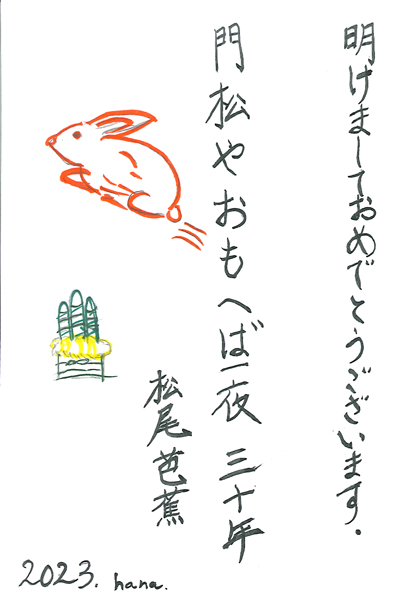 明けましておめでとうございます.
門松やおもへば一夜三十年
松尾芭蕉
2023. hana.